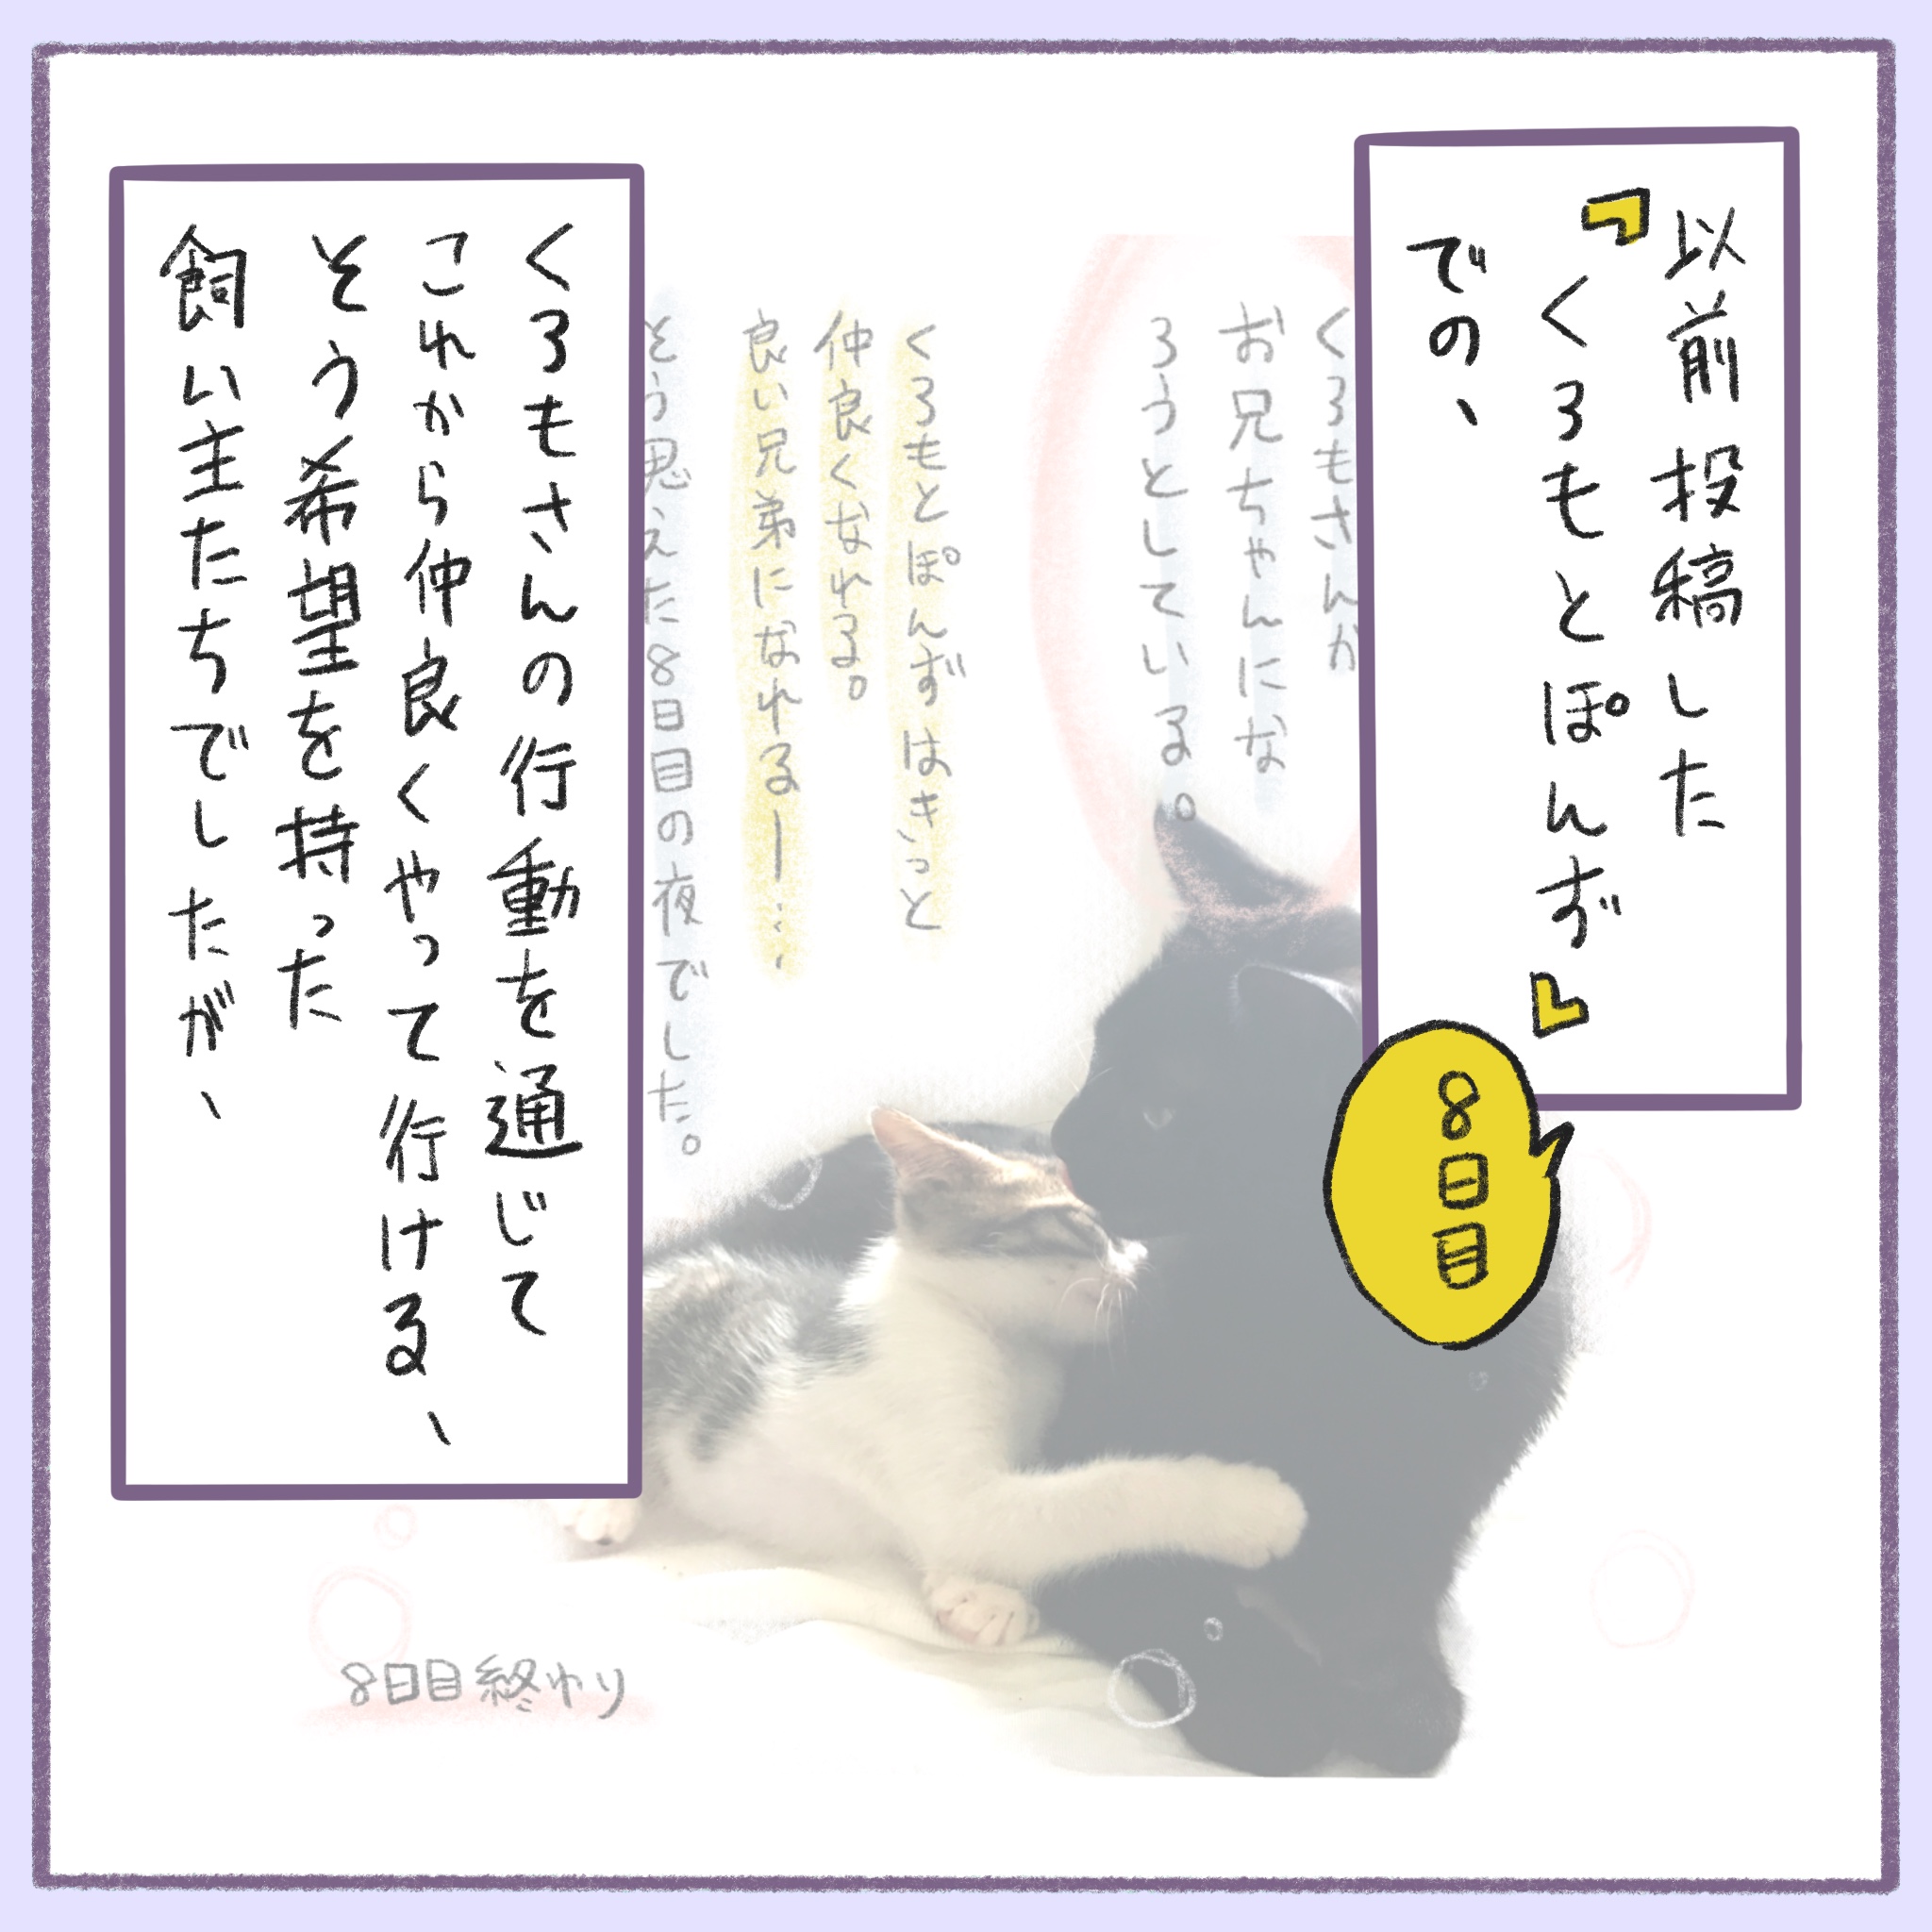 以前投稿した
『くろもとぽんず』
での、
8日目
くろもさんが
お兄ちゃんにな
ろうとしている。
くろもとぽんずはきっと
仲良くなれる。
良い兄弟になれるー…、
そう思えた8日目の夜でした。
くろもさんの行動を通じて
これから仲良くやって行ける、
そう希望を持った
飼い主たちでしたが、
8日目終わり